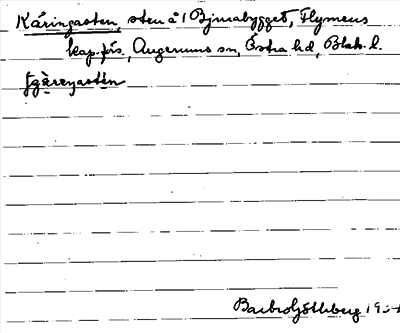 Käringasten, sten å 1 Bjurabygget, Flymens
kap.förs., Augerums sn, Östra hd, Blek. l.
Barbro Göthberg 1934